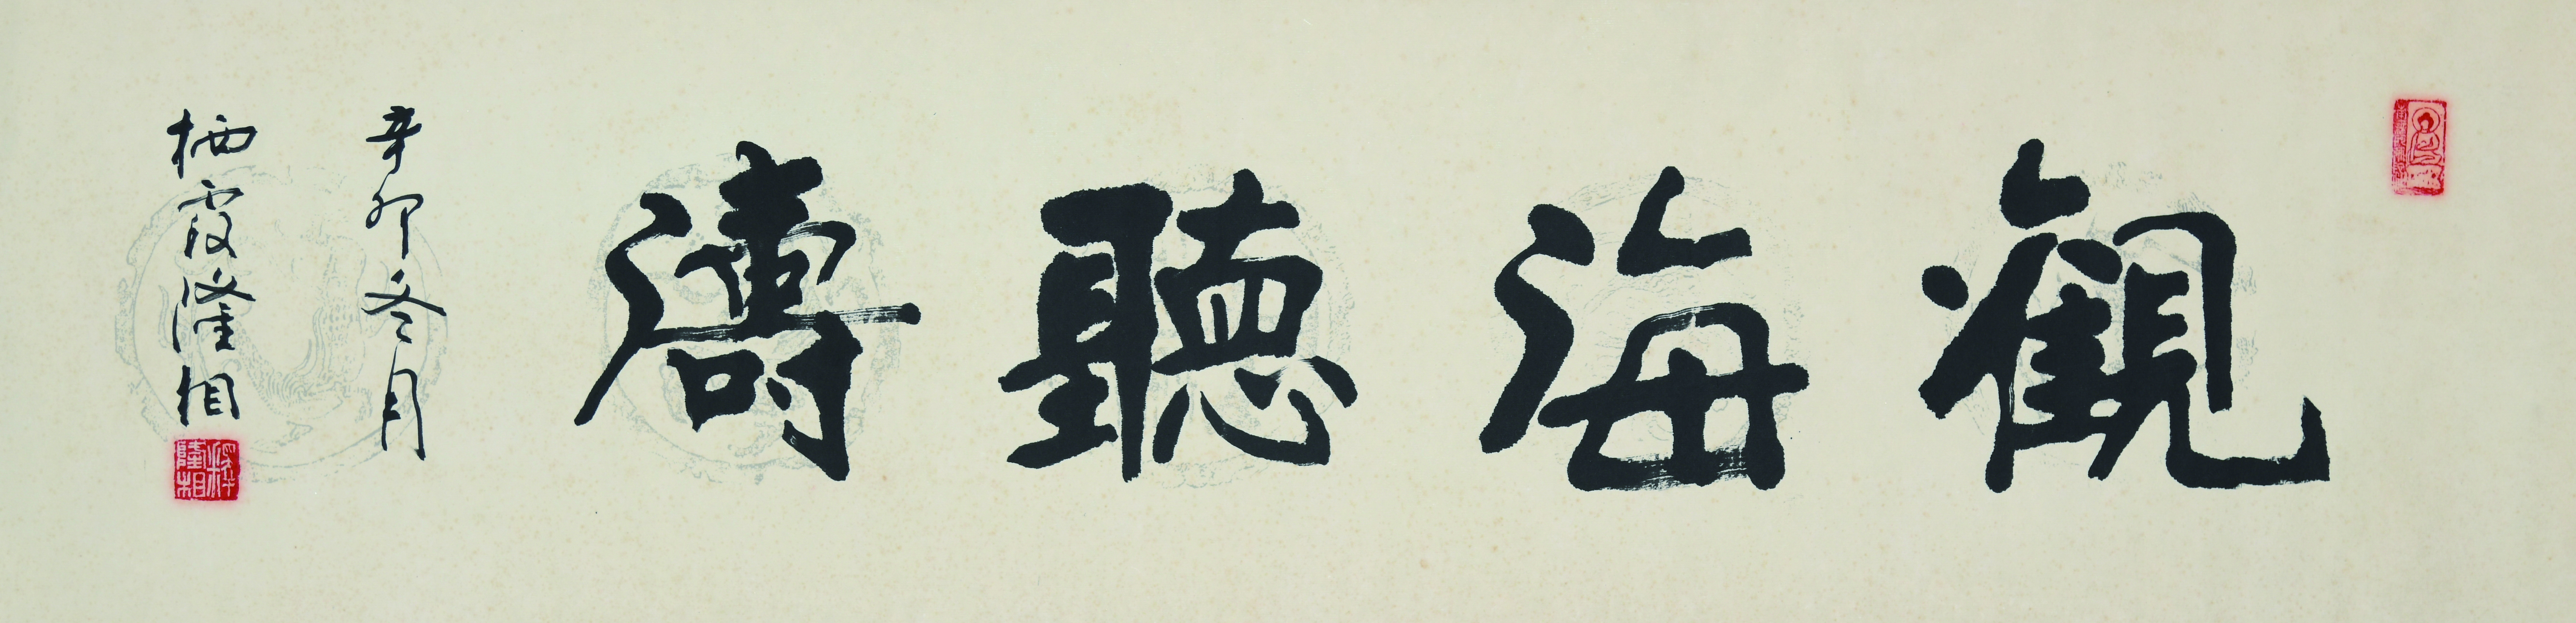 觀海聽濤
辛卯冬月
栖霞隆相
釋隆相